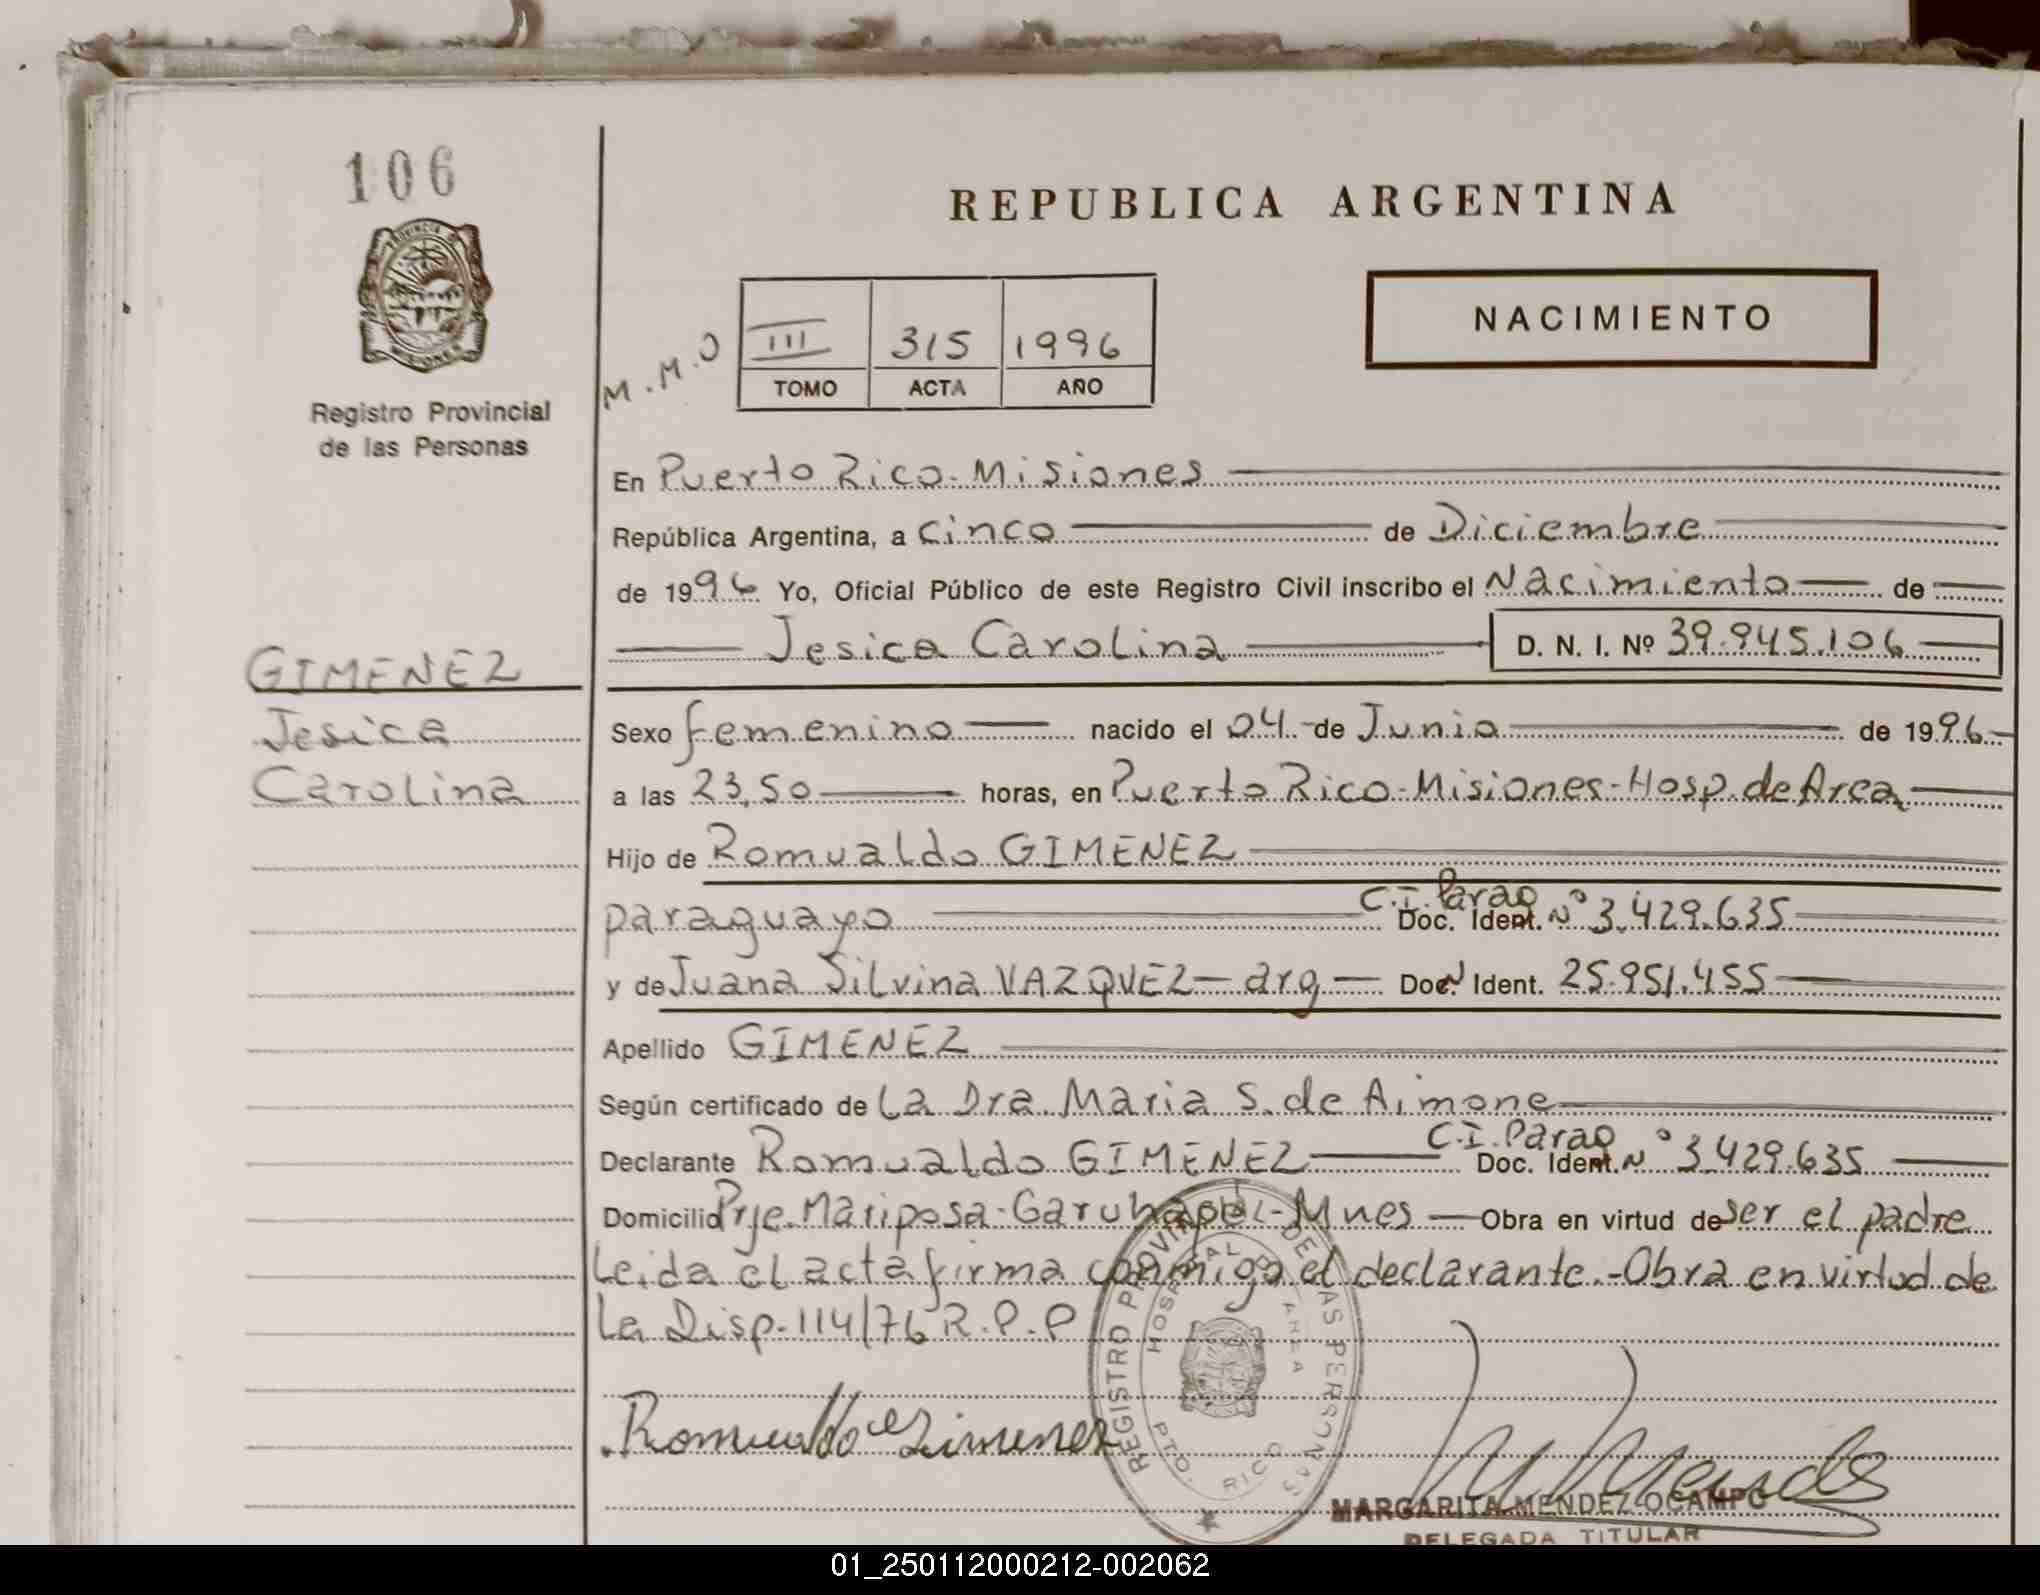 106
REPUBLICA ARGENTINA
NACIMIENTO
M.M.O
III 315 1996
TOMO ACTA AÑO
Registro Provincial
de las Personas
En Puerto Rico-Misiones
República Argentina, a Cinco de Diciembre
de 1996 Yo, Oficial Público de este Registro Civil inscribo el Nacimiento de
Jesica Carolina D. N. I. Nº 39.945.106
GIMENEZ
Jesica
Carolina
Sexo femenino nacido el 04 de Junio de 1996
a las 23,50 horas, en Puerto Rico-Misiones-Hosp. de Area
Hijo de Romualdo GIMENEZ
paraguayo C.I. Parag Doc. Ident. Nº 3.429.635
y de Juana Silvina VAZQUEZ - arg - Doc. Ident. 25.951.455
Apellido GIMENEZ
Según certificado de La Dra. Maria S. de Aimone
Declarante Romualdo GIMENEZ C.I. Parag Doc. Ident. Nº 3.429.635
Domicilio Prje. Mariposa-Garuhapé-Mnes Obra en virtud de ser el padre
Leida el acta firma conmigo el declarante.-Obra en virtud de
La Disp. 114/76 R.P.P
REGISTRO PROVINCIAL DE LAS PERSONAS
HOSPITAL DE AREA
PTO. RICO
Romualdo Gimenez
MARGARITA MENDEZ OCAMPO
DELEGADA TITULAR
01_250112000212-002062